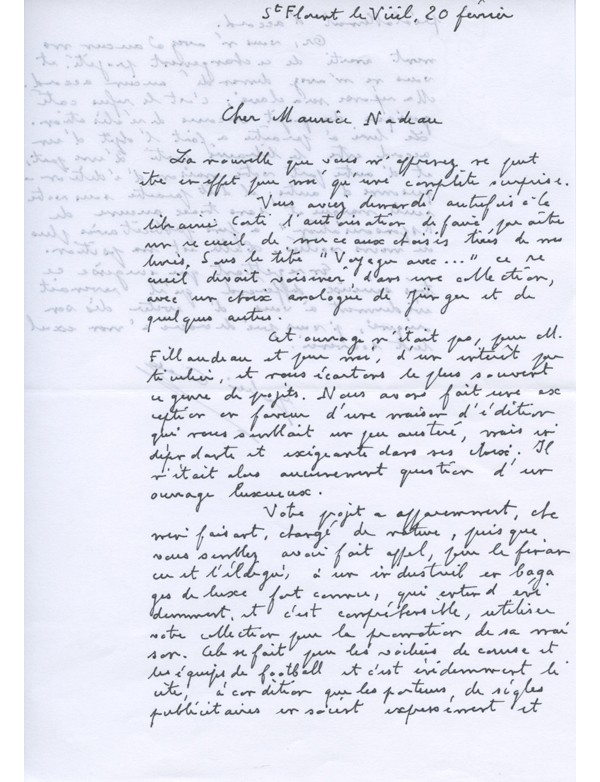 St Florent le Vieil, 20 février
Cher Maurice Nadeau
La nouvelle que vous m'apprenez ne peut
être en effet pour moi qu'une complète surprise.
Vous aviez demandé autrefois à la
librairie Corti l'autorisation de faire paraître
un recueil de morceaux choisis tirés de mes
livres. Sous le titre "Voyager avec..." ce re
cueil devait voisiner dans une collection,
avec un choix analogue de Jünger et de
quelques autres.
Cet ouvrage n'était pas, pour M.
Fillaudeau et pour moi, d'un intérêt par
ticulier, et nous écartons le plus souvent
ce genre de projets. Nous avons fait une ex
ception en faveur d'une maison d'édition
qui nous semblait un peu austère, mais in
dépendante et exigeante dans ses choix. Il
n'était alors aucunement question d'un
ouvrage luxueux.
Votre projet a apparemment, che
min faisant, changé de nature, puisque
vous semblez avoir fait appel, pour le finan
cer et l'éditer, à un industriel en baga
ges de luxe fort connu, qui entend évi
demment, et c'est compréhensible, utiliser
votre collection pour la promotion de sa mai
son. Cela se fait pour les voiliers de course et
les équipes de football et c'est évidemment li
cite, à condition que les porteurs, de sigles
publicitaires en soient expressément et